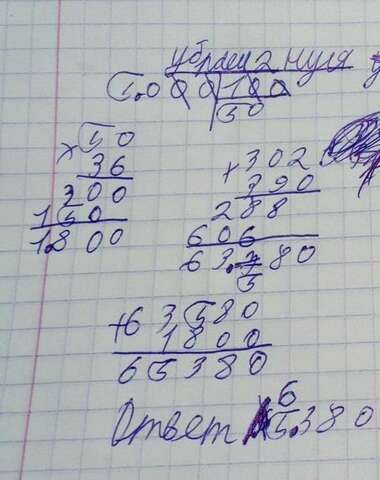 убрали 2 нуля
5.000 100
50
× 50
36
300
150
1800
× 302
390
288
606
63.780
5
+ 63580
1800
65380
6
Ответ 5.380